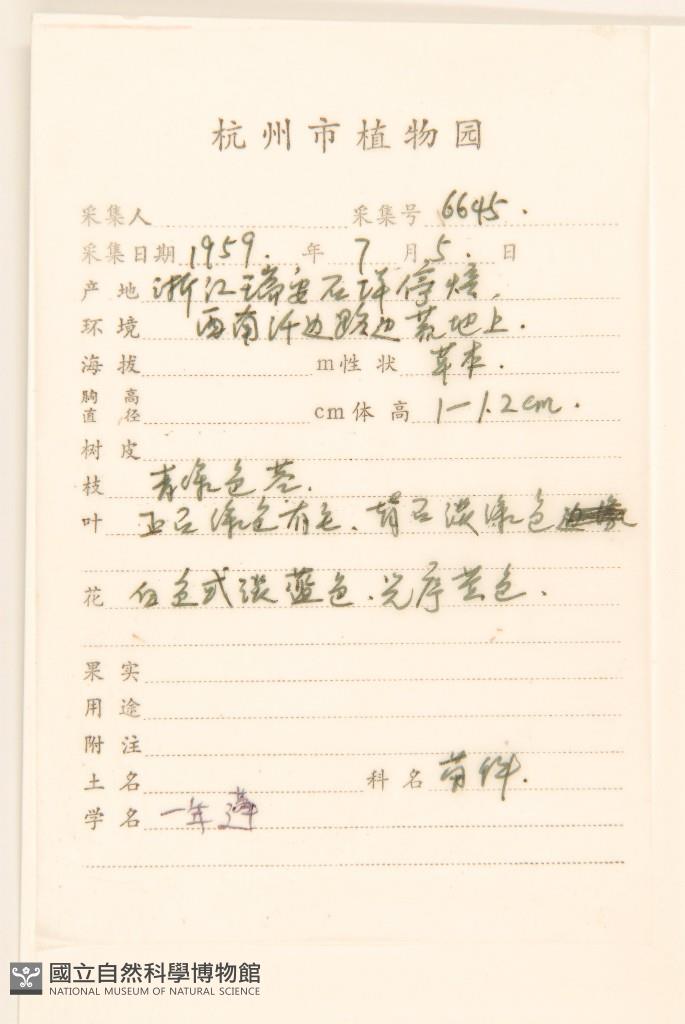 杭州市植物园
采集人 采集号 6645.
采集日期 1959. 年 7 月 5. 日
产地 浙江瑞安石垟
环境 西南 边路边荒地上.
海拔 m性状 草本.
胸高直径 cm体高 1-1.2cm.
树皮
枝 青绿色茎.
叶 正面绿色有毛、背面淡绿色
花 白色或淡蓝色.花序黄色.
果实
用途
附注
土名 科名 菊科.
学名 一年蓬
國立自然科學博物館
NATIONAL MUSEUM OF NATURAL SCIENCE